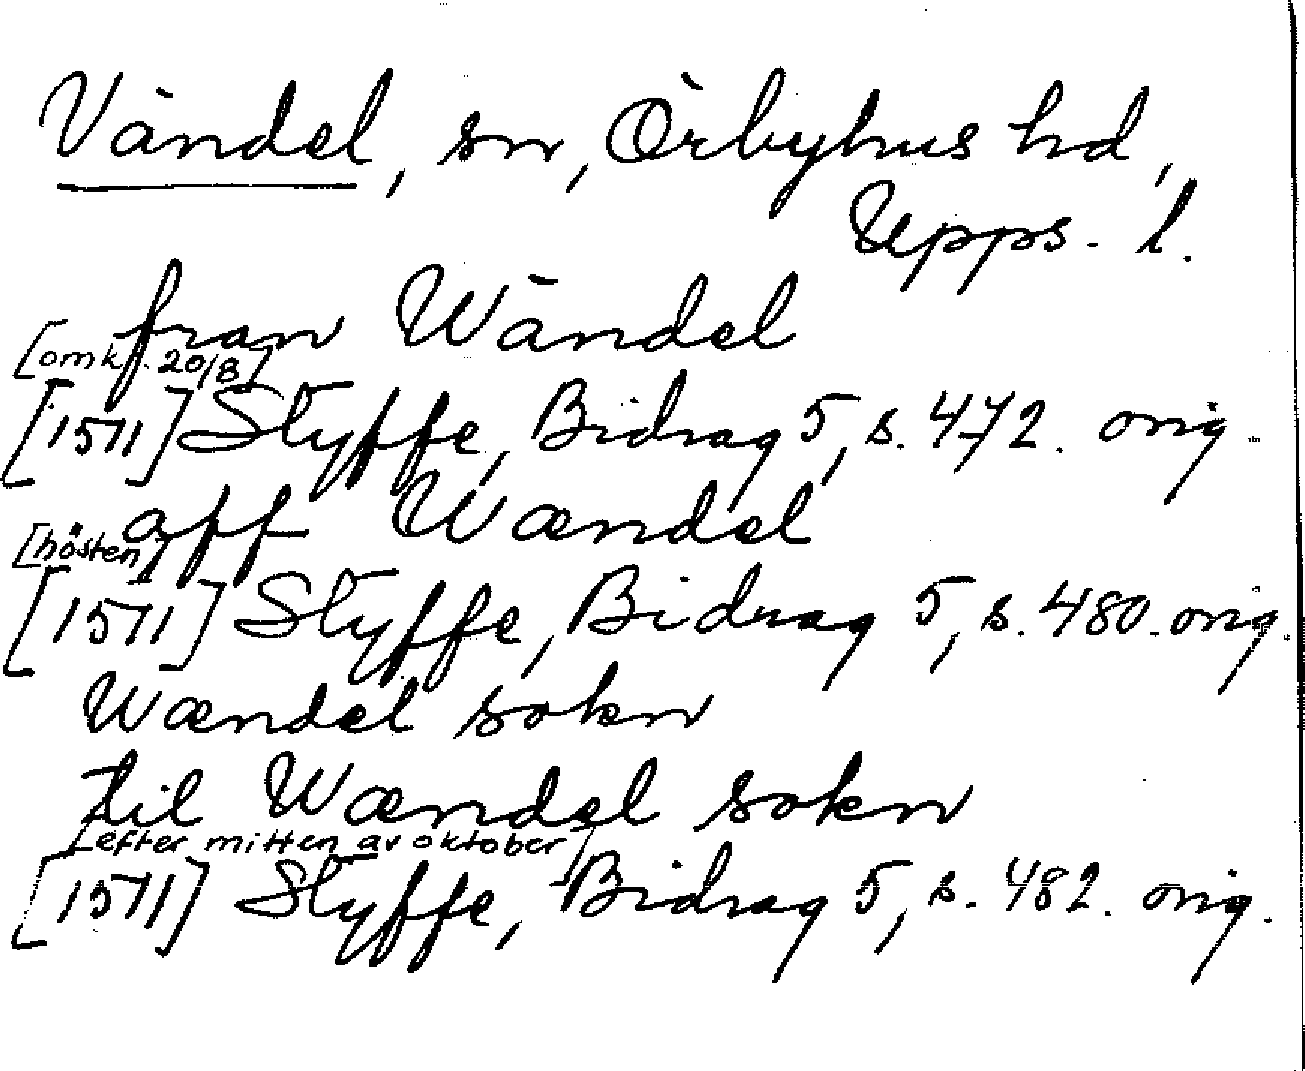 Vändel, sn, Örbyhus hd,
Upps. l.
fran Wändel
[omkr. 20/8]
[1511] Styffe, Bidrag 5, s. 472. orig.
aff Wændel
[hösten]
[1511] Styffe, Bidrag 5, s. 480. orig.
Wændel sokn
til Wændel sokn
[efter mitten av oktober]
[1511] Styffe, Bidrag 5, s. 482. orig.